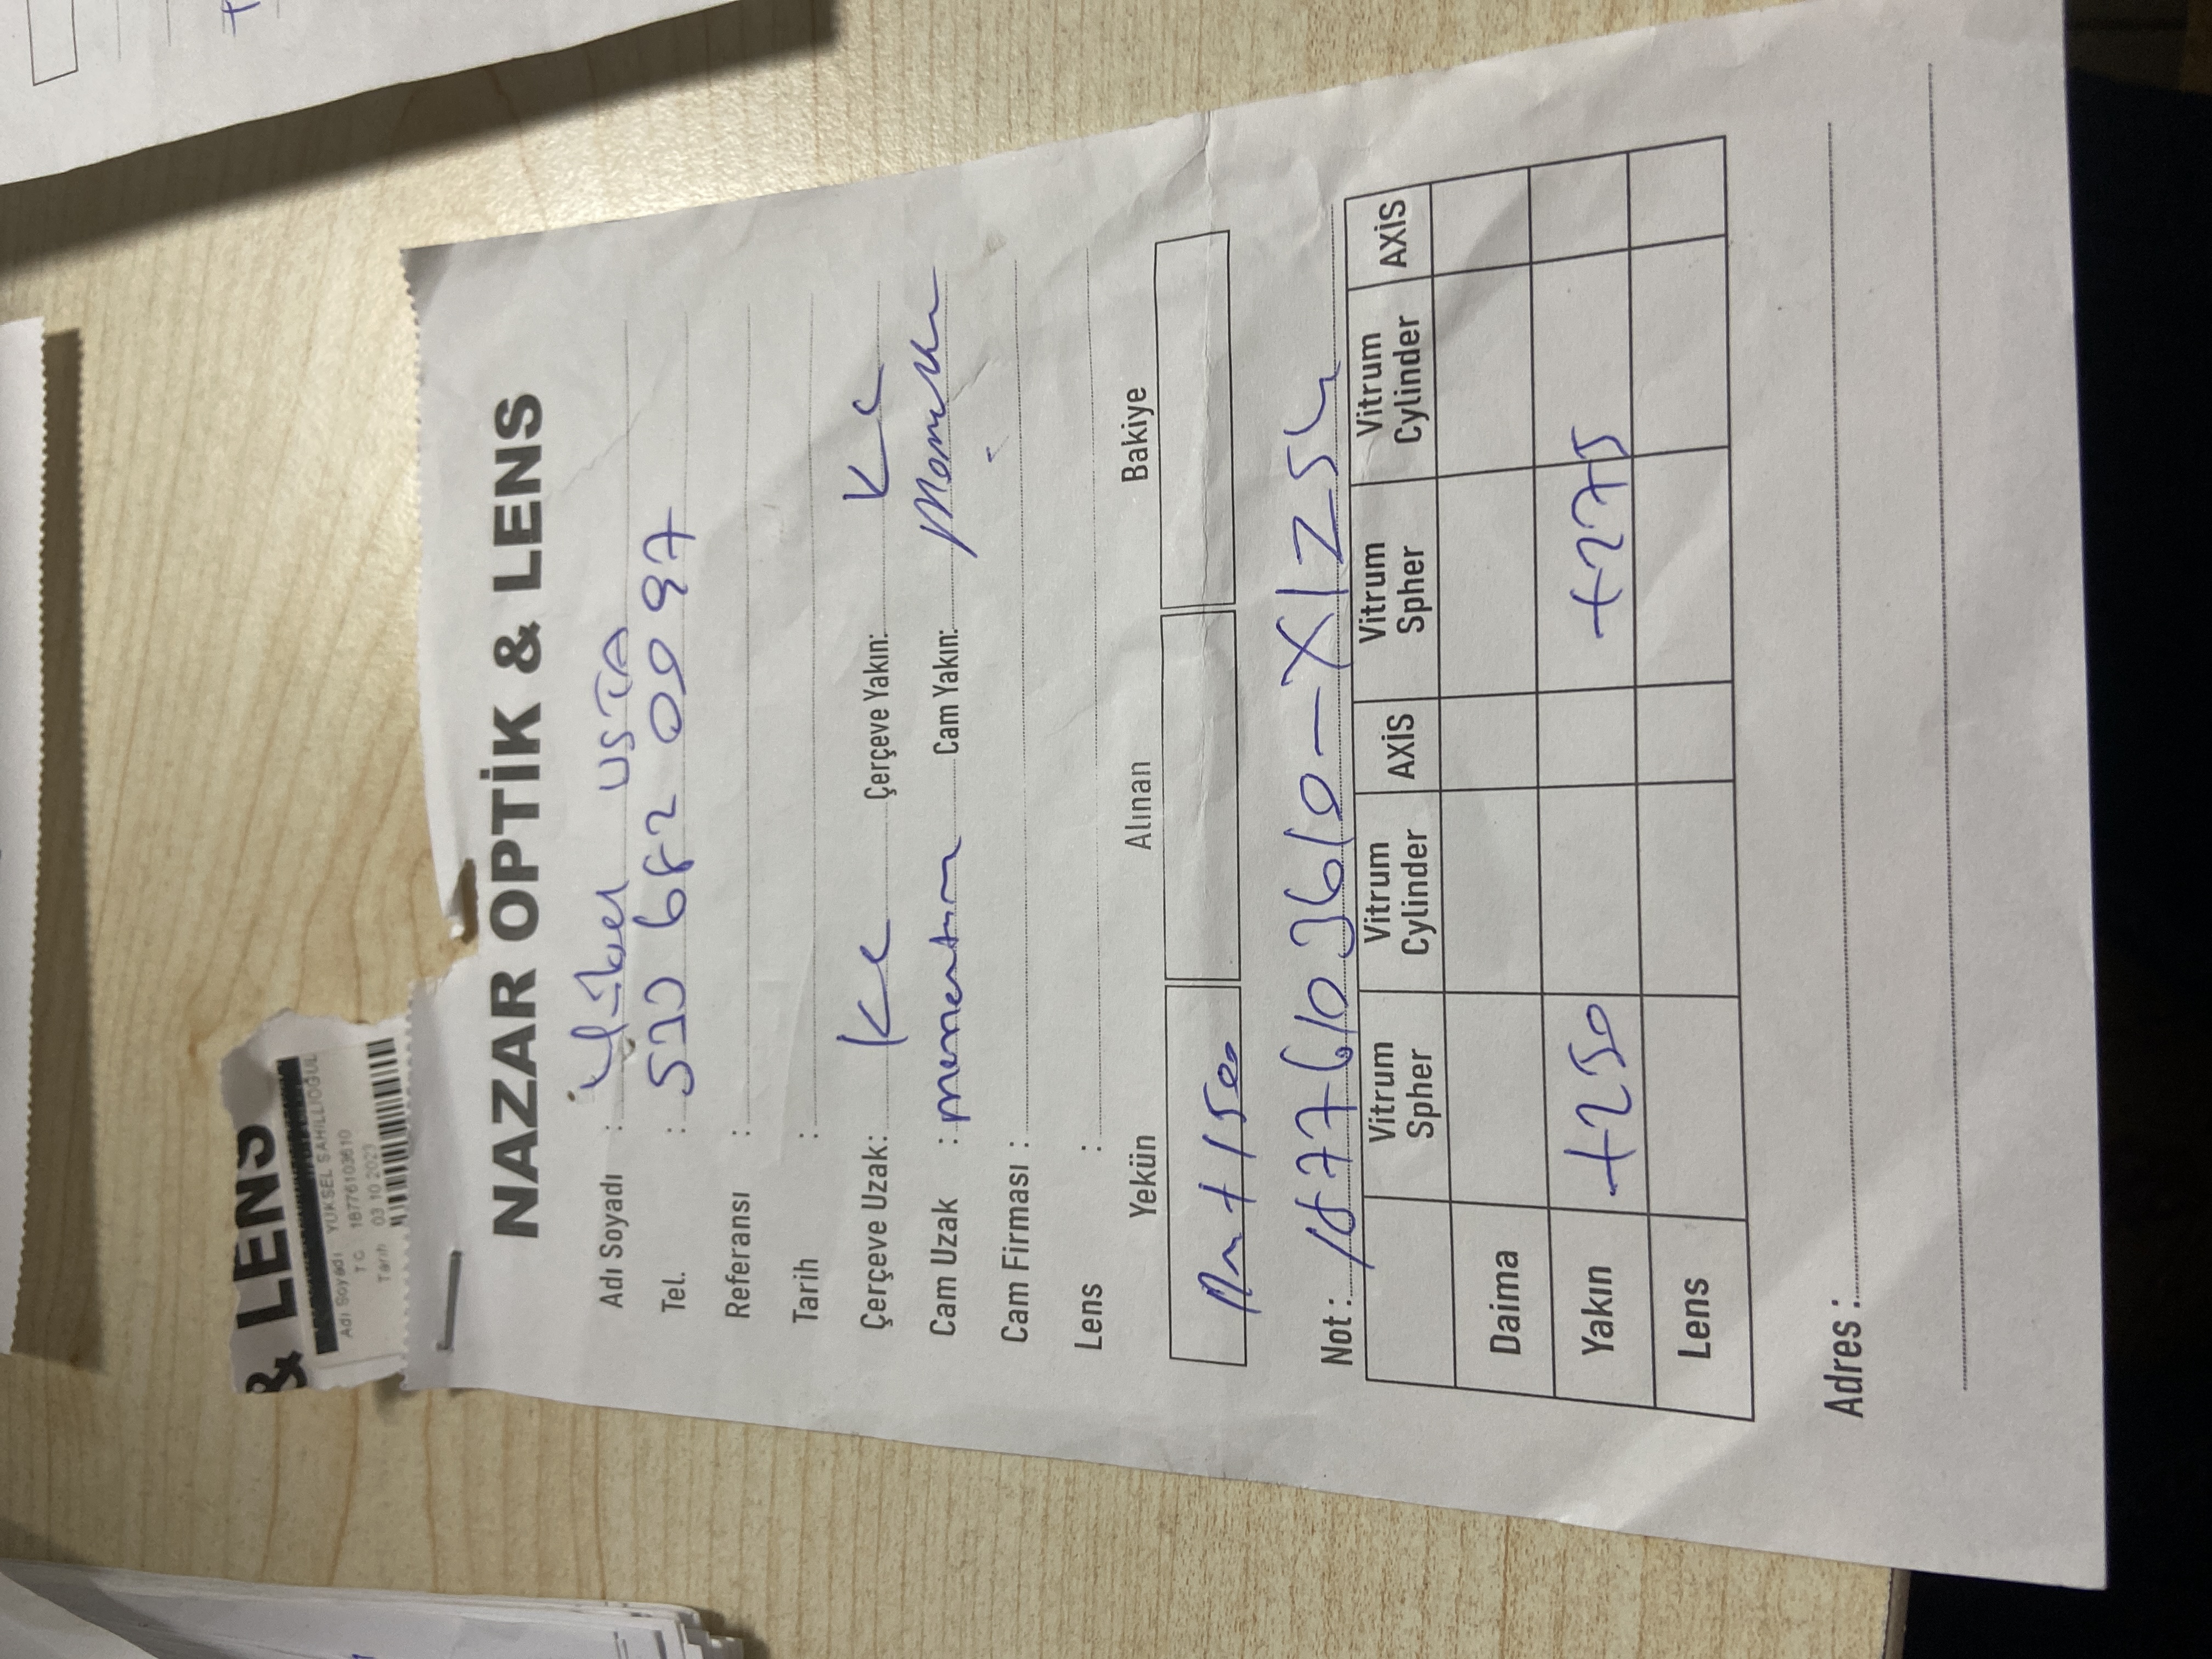 & LENS
Adı Soyadı YÜKSEL SAHİLLİOĞUL
TC 18776103610
Tarih 03.10.2023
NAZAR OPTİK & LENS
Adı Soyadı : Yüksel USTA
Tel. : 533 682 0097
Referansı :
Tarih :
Çerçeve Uzak: Kc Çerçeve Yakın: Kc
Cam Uzak : momentum Cam Yakın:
Cam Firması :
Lens :
Yekün Alınan Bakiye
+ 1500
Not : 18776103610-X1Z54
Vitrum Spher Vitrum Cylinder AXİS Vitrum Spher Vitrum Cylinder AXİS
Daima
Yakın +250 +275
Lens
Adres :